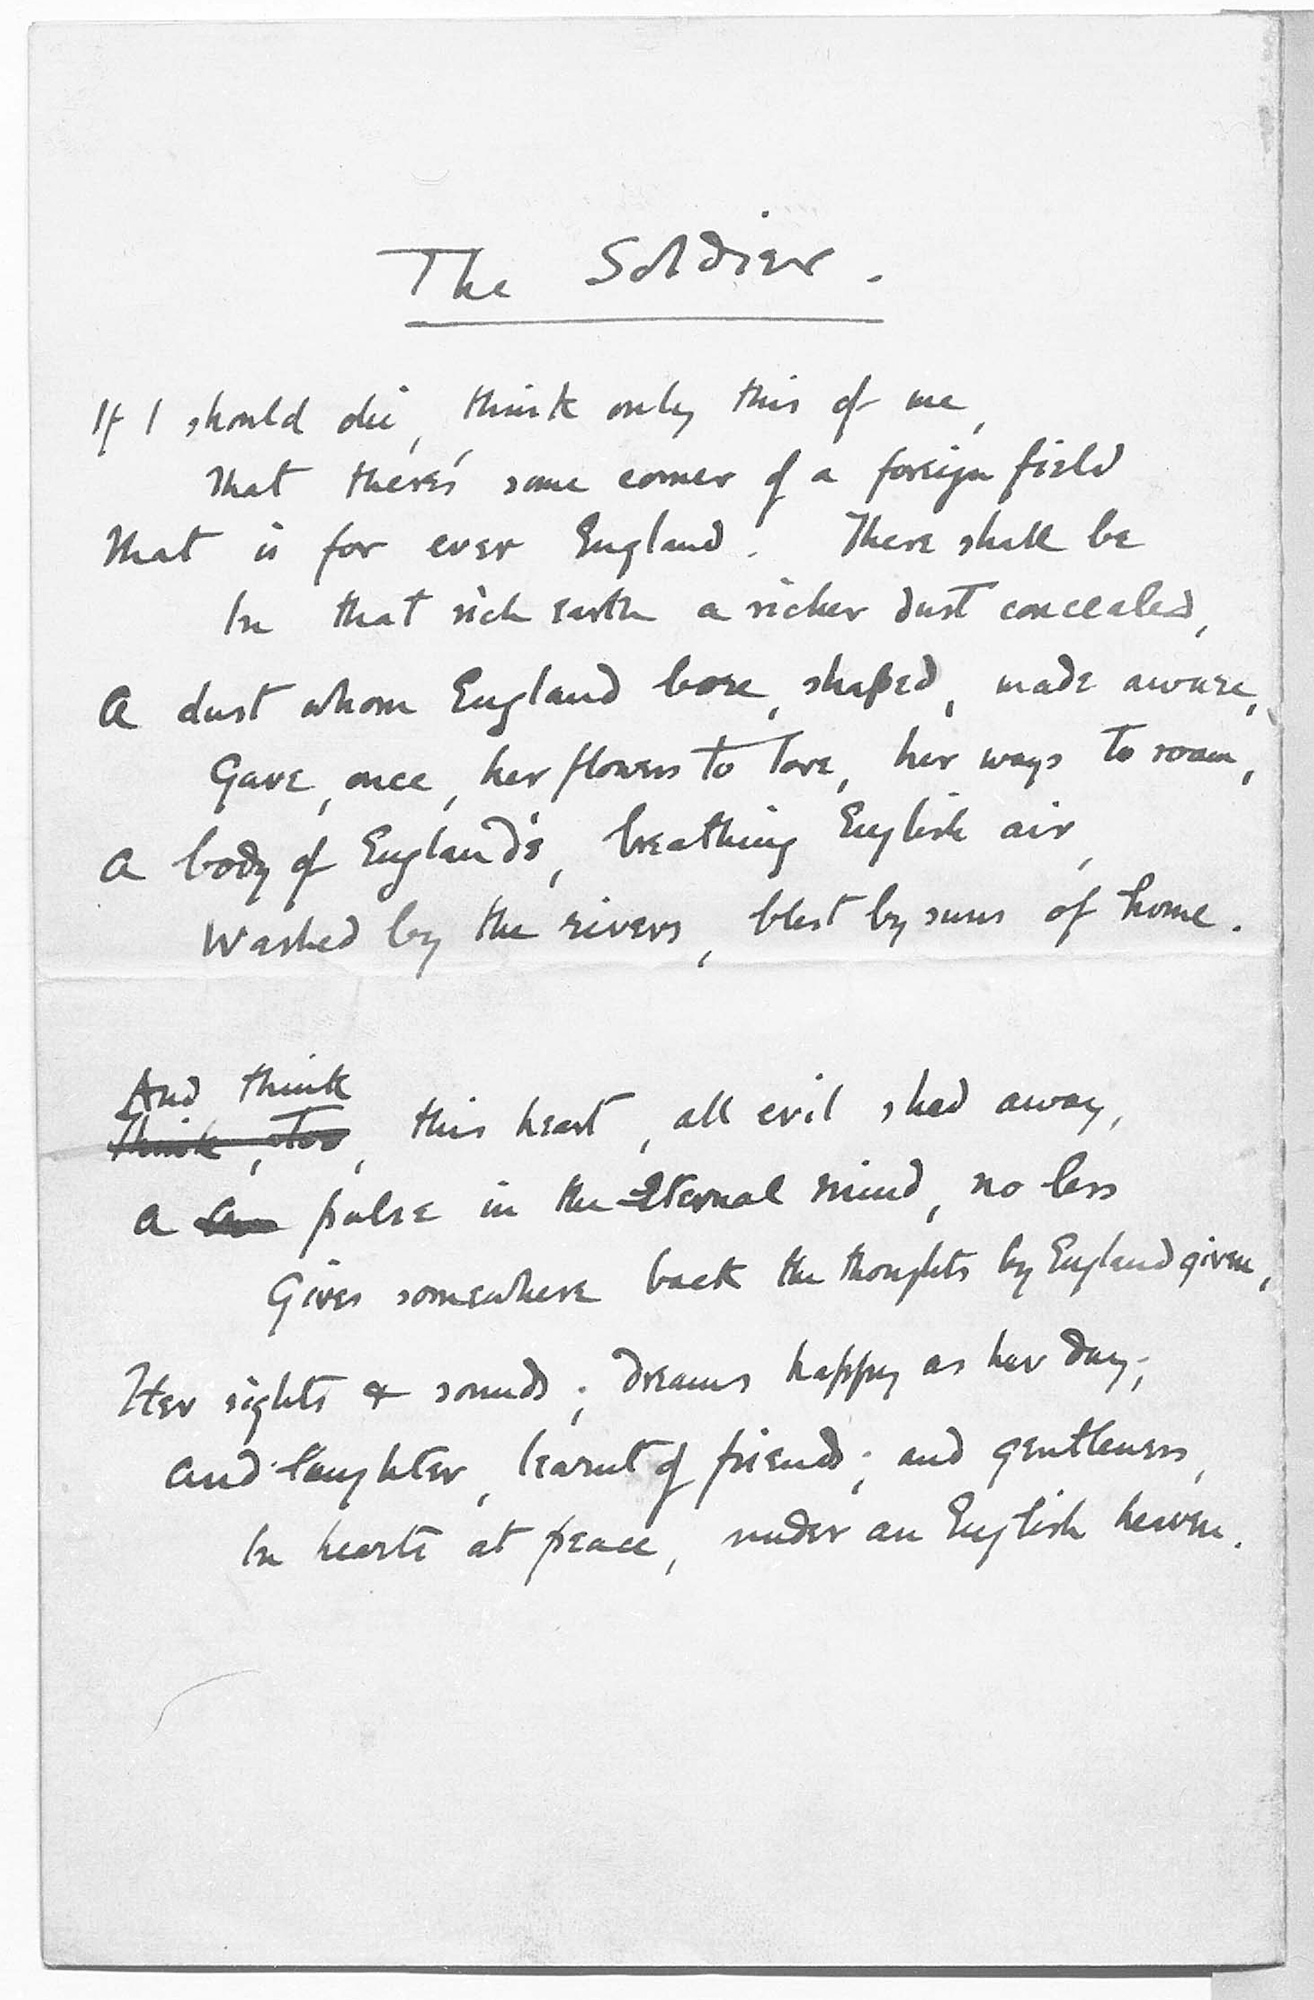 The Soldier.
If I should die, think only this of me,
That there's some corner of a foreign field
That is for ever England. There shall be
In that rich earth a richer dust concealed,
A dust whom England bore, shaped, made aware,
Gave, once, her flowers to love, her ways to roam,
A body of England's, breathing English air,
Washed by the rivers, blest by suns of home.
And think
Think, too, this heart, all evil shed away,
A pulse in the eternal mind, no less
Gives somewhere back the thoughts by England given,
Her sights & sounds; dreams happy as her day;
And laughter, learnt of friends; and gentleness,
In hearts at peace, under an English heaven.